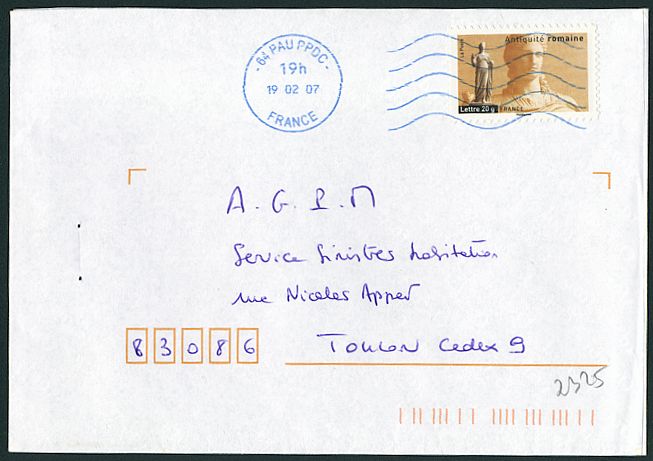 64 PAU PPDC
19h
19 02 07
FRANCE
Antiquité romaine
La Poste
Lettre 20 g
FRANCE
A. G. P. M
Service Sinistres habitation
rue Nicolas Appert
83086 Toulon Cedex 9
2325